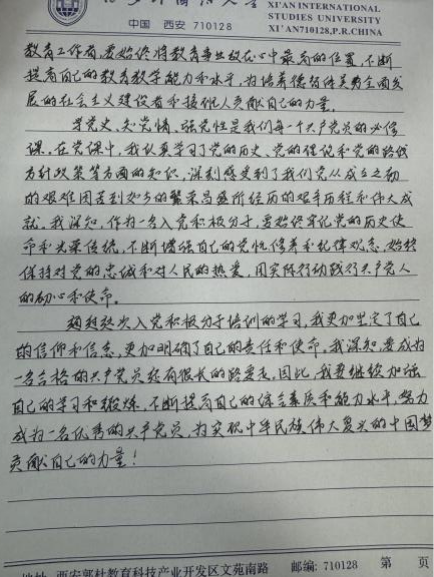 XI'AN INTERNATIONAL
STUDIES UNIVERSITY
中国 西安 710128 XI'AN710128,P.R.CHINA
教育工作者,要始终将教育事业放在心中最高的位置,不断
提高自己的教育教学能力和水平,为培养德智体美劳全面发
展的社会主义建设者和接班人贡献自己的力量。
学党史、知党情、强党性是我们每一个共产党员的必修
课。在党课中,我认真学习了党的历史、党的理论和党的路线
方针政策等方面的知识,深刻感受到了我们党从成立之初
的艰难困苦到如今的繁荣昌盛所经历的艰辛历程和伟大成
就。我深知,作为一名入党积极分子,要始终牢记党的历史使
命和光荣传统,不断增强自己的党性修养和纪律观念,始终
保持对党的忠诚和对人民的热爱,用实际行动践行共产党人
的初心和使命。
通过这次入党积极分子培训的学习,我更加坚定了自己
的信仰和信念,更加明确了自己的责任和使命。我深知要成为
一名合格的共产党员还有很长的路要走,因此,我要继续加强
自己的学习和锻炼,不断提高自己的综合素质和能力水平,努力
成为一名优秀的共产党员,为实现中华民族伟大复兴的中国梦
贡献自己的力量!
地址:西安郭杜教育科技产业开发区文苑南路 邮编:710128 第 页